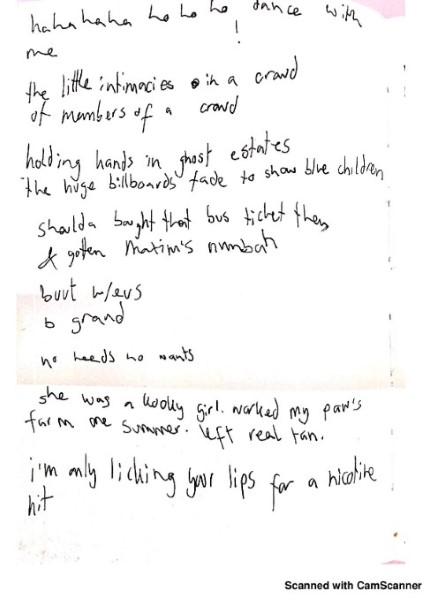 hahahahaha ho ho ho ! dance with
me
the little intimacies in a crowd
of members of a crowd
holding hands in ghost estates
the huge billboards fade to show blue children
shoulda bought that bus ticket then,
& gotten Maxim's numbah
buut w/evs
b grand
no needs no wants
she was a kooky girl. worked my paw's
farm one summer. left real tan.
i'm only licking your lips for a nicotine
hit
Scanned with CamScanner